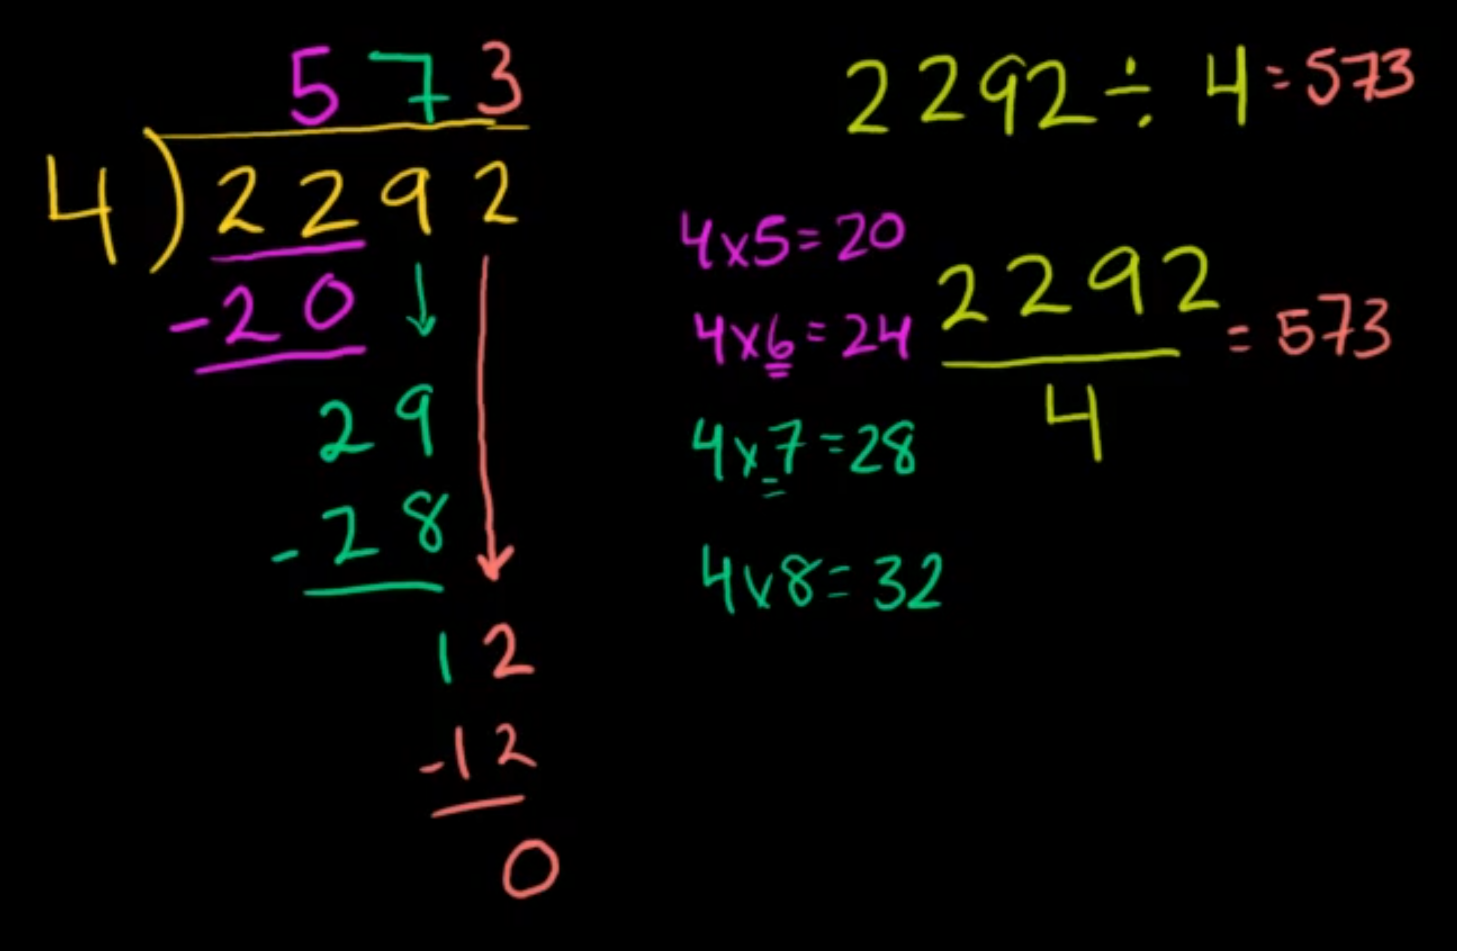 573
4)2292
-20
29
-28
12
-12
0
2292÷4=573
4x5=20
4x6=24
4x7=28
4x8=32
2292
4
=573